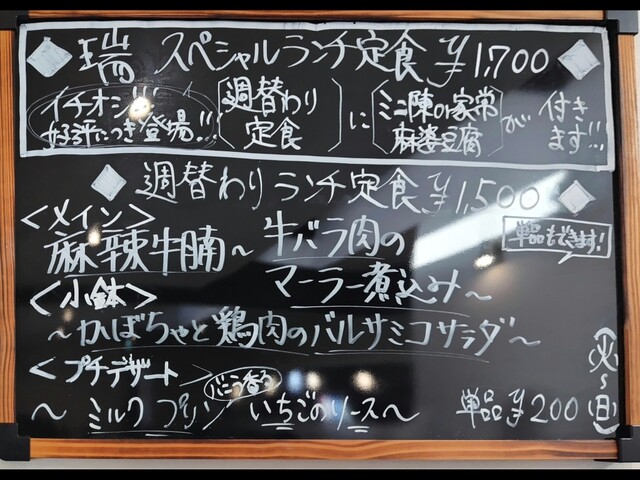 瑞 スペシャルランチ定食 ¥1,700
イチオシ!!!
好評につき登場!!!
週替わり
定食
に
ミニ陳or家常
麻婆豆腐
が
付き
ます!!
週替わり ランチ定食 ¥1,500
<メイン>
麻辣牛腩~ 牛バラ肉の
マーラー煮込み~
単品もできます!
<小鉢>
~かぼちゃと鶏肉のバルサミコサラダ~
<プチデザート>
バニラ香る
~ミルクプリン いちごのソース~ 単品¥200
(火~日)